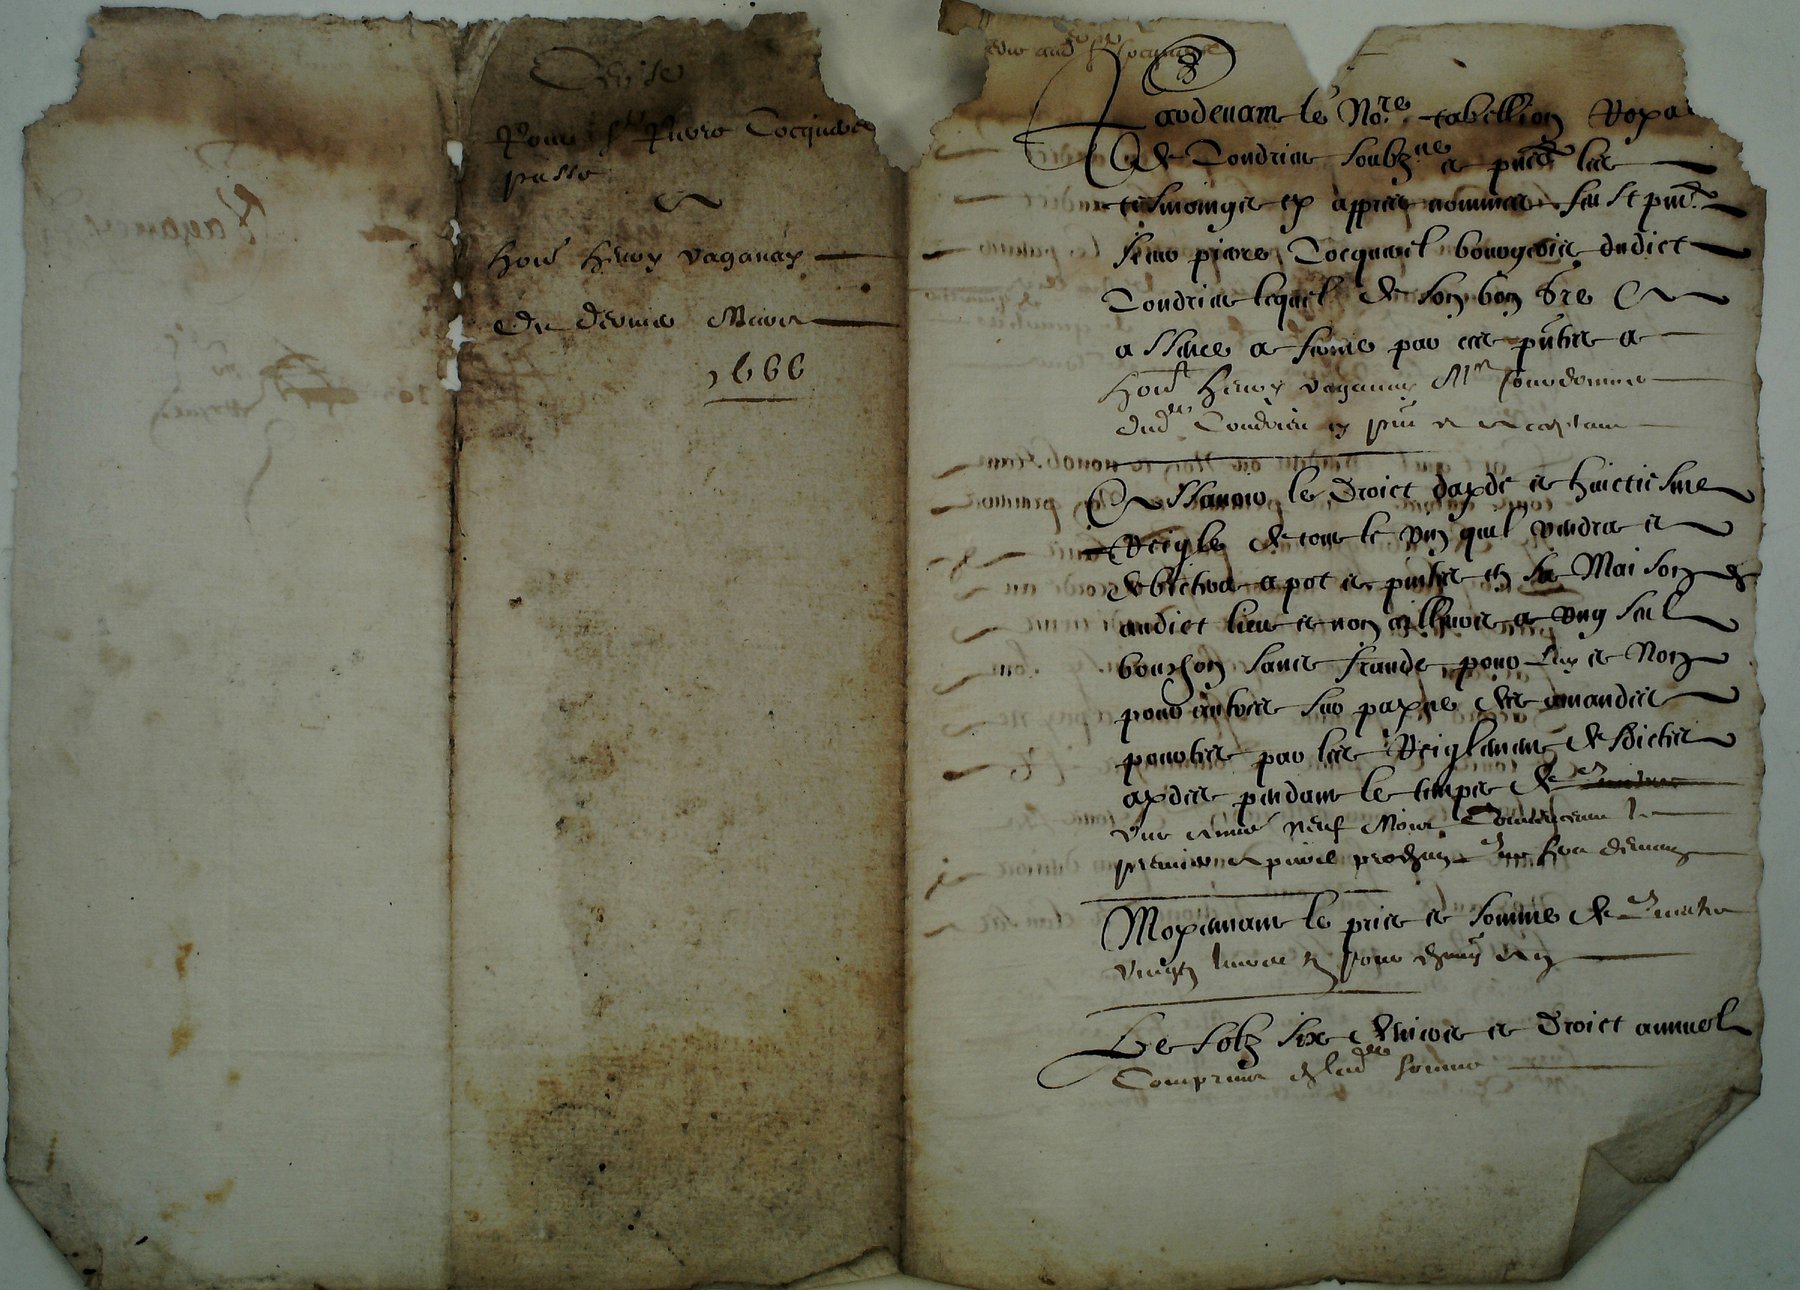 Pour Sr Pierre Cocquerel
passe
Honn Henry Vaganay
Du dernier Mars
1666
Pardevant le Nore tabellion Royal
de Condrieu soubzne et pnts les
tesmoings cy appres nommes fust pnt
sieur pierre Cocquerel bourgeois dudict
Condrieu lequel de son bon gre
a ssence a ferme par ces pntes a
Hont Henry Vaganay Mre
dud Condrieu cy pnt et acceptant
Assavoir le droict dayde et huictiesme
Reigle de tout le vin quil vendra et
debitera a pot et pintes en sa Maison
audict lieu et non ailheurs a ung seul
bouchon sans fraude pour luy et Non
pour autres sur payne des amandes
portees par les Reiglemens desdictes
aydes pendant le temps de
une annee Neuf Mois Commenceant le
premier apvril prochain
Moyenant le pris et somme de quatre
vingtz livres
Le solz six deniers et droict annuel
Comprins en lad somme